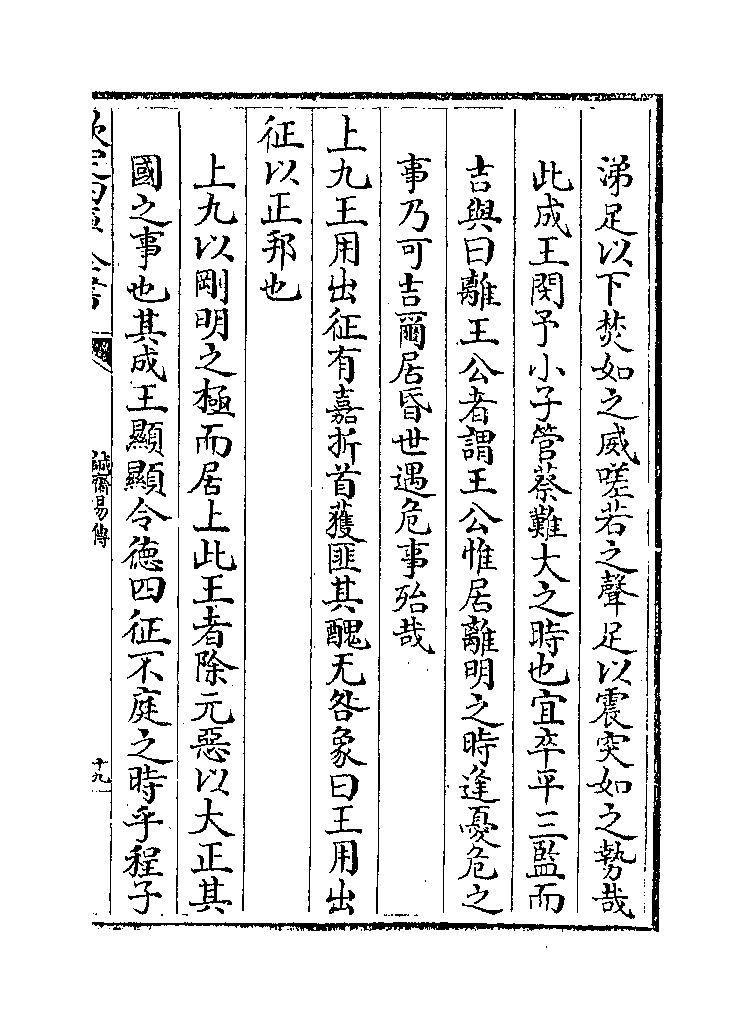 涕足以下焚如之威嗟若之聲足以震突如之勢哉
此成王閔予小子管蔡難大之時也宜卒平三監而
吉與曰離王公者謂王公惟居離明之時逢憂危之
事乃可吉爾居昏世遇危事殆哉
上九王用出征有嘉折首獲匪其醜无咎象曰王用出
征以正邦也
上九以剛明之極而居上此王者除元惡以大正其
國之事也其成王顯顯令德四征不庭之時乎程子
誠齋易傳
十九